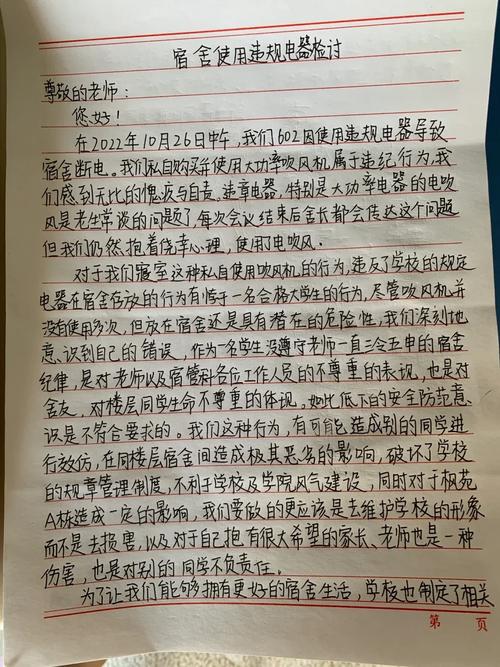 宿舍使用违规电器检讨
尊敬的老师：
您好！
在2022年10月26日中午，我们602因使用违规电器导致
宿舍断电。我们私自购买并使用大功率吹风机属于违纪行为，我
们感到无比的愧疚与自责。违章电器，特别是大功率电器的电吹
风是老生常谈的问题了，每次会议结束后舍长都会传达这个问题
但我们仍然抱着侥幸心理，使用了电吹风。
对于我们寝室这种私自使用吹风机的行为，违反了学校的规定
电器在宿舍存放的行为有悖于一名合格大学生的行为，尽管吹风机并
没有使用多次，但放在宿舍还是具有潜在的危险性，我们深刻地
意识到自己的错误，作为一名学生没遵守老师一直三令五申的宿舍
纪律，是对老师以及宿管科各位工作人员的不尊重的表现，也是对
舍友，对楼层同学生命不尊重的体现。如此低下的安全防范意
识是不符合要求的。我们这种行为，有可能造成别的同学进
行效仿，在同楼层宿舍间造成极其恶劣的影响，破坏了学校
的规章管理制度，不利于学校及学院风气建设，同时对于枫苑
A栋造成一定的影响，我们要做的更应该是去维护学校的形象
而不是去损害，以及对于自己抱有很大希望的家长、老师也是一种
伤害，也是对别的同学不负责任。
为了让我们能够拥有更好的宿舍生活，学校也制定了相关
第 页